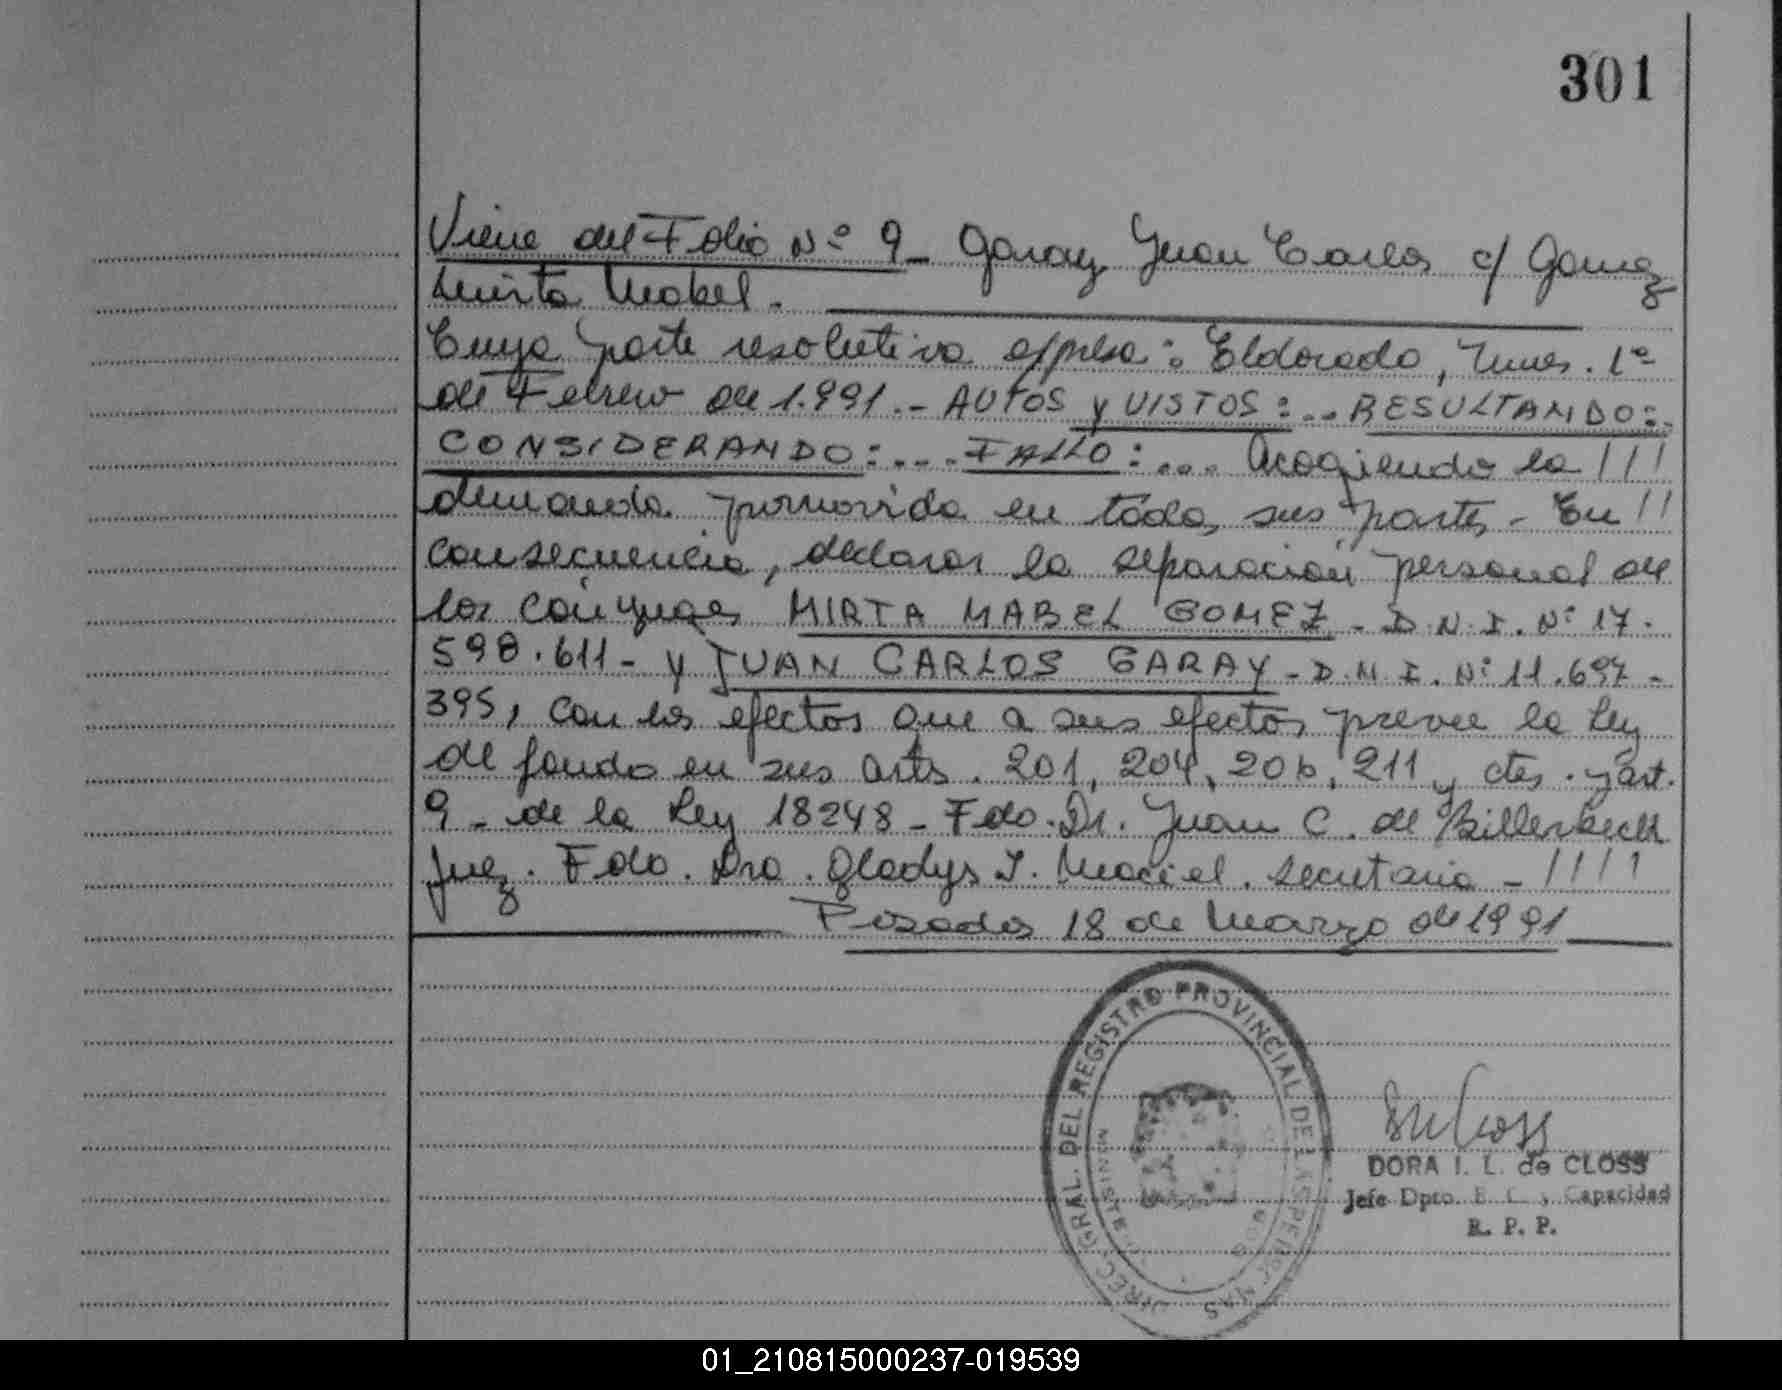 301
Viene del Folio Nº 9_ Garay Juan Carlos c/ Gomez
Mirta Mabel.
Cuya parte resolutiva expresa: Eldorado, Mnes. 1º
de Febrero de 1.991.- AUTOS y VISTOS:... RESULTANDO:.
CONSIDERANDO:.... FALLO:... Acogiendo la ///
demanda promovida en todas sus partes - En //
consecuencia, declarar la separación personal de
los cónyuges MIRTA MABEL GOMEZ - D.N.I. Nº 17.
598.611- y JUAN CARLOS GARAY - D.N.I. Nº 11.697-
395, con los efectos que a sus efectos prevee la Ley
de fondo en sus arts. 201, 204, 206, 211 y ctes. y art.
9 - de la Ley 18248 - Fdo. Dr. Juan C. de Billerbeck
Juez. Fdo. Dra. Gladys I. Maciel. Secretaria - ////
Posadas 18 de Marzo de 1991
DIREC. GRAL. DEL REGISTRO PROVINCIAL DE LAS PERSONAS
DORA I. L. de CLOSS
Jefe Dpto. E. C. y Capacidad
R. P. P.
01_210815000237-019539